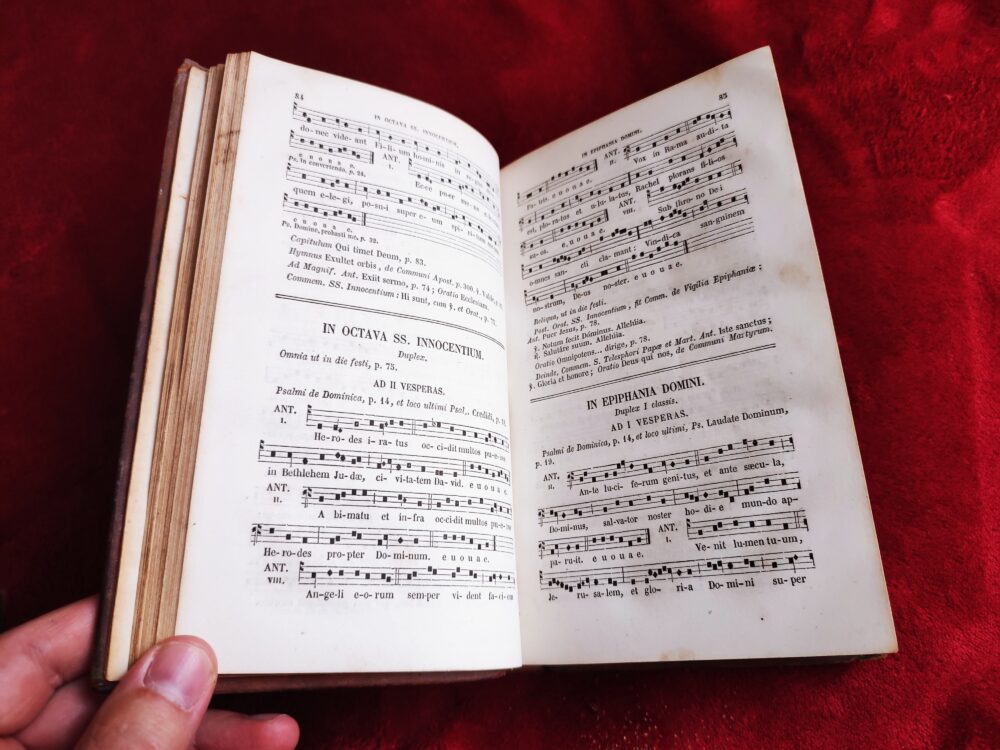 84
IN OCTAVA SS. INNOCENTIUM.
do-nec vide-ant Fi-li-um ho-mi-nis in re-gno
e u o u a e. ANT. I.
Ps. In convertendo, p. 24. Ecce puer me-us
quem e-le-gi, po-su-i super e-um spi-ri-tum
e u o u a e.
Ps. Domine, probasti me, p. 32.
Capitulum Qui timet Deum, p. 83.
Hymnus Exultet orbis, de Communi Apost. p. 300, ℣. Valde
Ad Magnif. Ant. Exiit sermo, p. 74; Oratio Ecclesiam.
Commem. SS. Innocentium: Hi sunt, cum ℣. et Orat., p.
IN OCTAVA SS. INNOCENTIUM.
Duplex.
Omnia ut in die festi, p. 75.
AD II VESPERAS.
Psalmi de Dominica, p. 14, et loco ultimi Psal.. Credidi, p.
ANT. I.
He-ro-des i-ra-tus oc-ci-dit multos pu-e-ros
in Bethlehem Ju-dæ, ci-vi-ta-tem Da-vid. e u o u a e.
ANT. II.
A bi-matu et in-fra oc-ci-dit multos pu-e-ros
He-ro-des prop-ter Do-mi-num. e u o u a e.
ANT. VIII.
An-ge-li e-o-rum sem-per vi-dent fa-ci-em
85
IN EPIPHANIA DOMINI.
Pa-tris. e u o u a e. ANT. II. Vox in Rama au-di-ta
est, plo-ra-tus et u-lu-la-tus, Rachel plorans fi-li-os
su-os. e u o u a e. ANT. VIII. Sub thro-no De-i
omnes san-cti cla-mant: Vin-di-ca san-guinem
no-strum, De-us no-ster. e u o u a e.
Reliqua, ut in die festi.
Post. Orat. SS. Innocentium, fit Comm. de Vigilia Epiphaniæ;
Ant. Puer Jesus, p. 78.
℣. Notum fecit Dóminus. Allelúia.
℟. Salutáre suum. Allelúia.
Oratio Omnipotens... dirige, p. 78.
Deinde, Commem. S. Telesphori Papæ et Mart. Ant. Iste sanctus;
℣. Gloria et honore; Oratio Deus qui nos, de Communi Martyrum.
IN EPIPHANIA DOMINI.
Duplex I classis.
AD I VESPERAS.
Psalmi de Dominica, p. 14, et loco ultimi, Ps. Laudate Dominum,
p. 19.
ANT. II.
An-te lu-ci-ferum genitus, et ante sæcu-la,
Do-minus, sal-va-tor noster ho-di-e mun-do ap-
pa-ru-it. e u o u a e. ANT. I. Ve-nit lu-men tu-um,
Je-ru-sa-lem, et glo-ri-a Do-mi-ni su-per